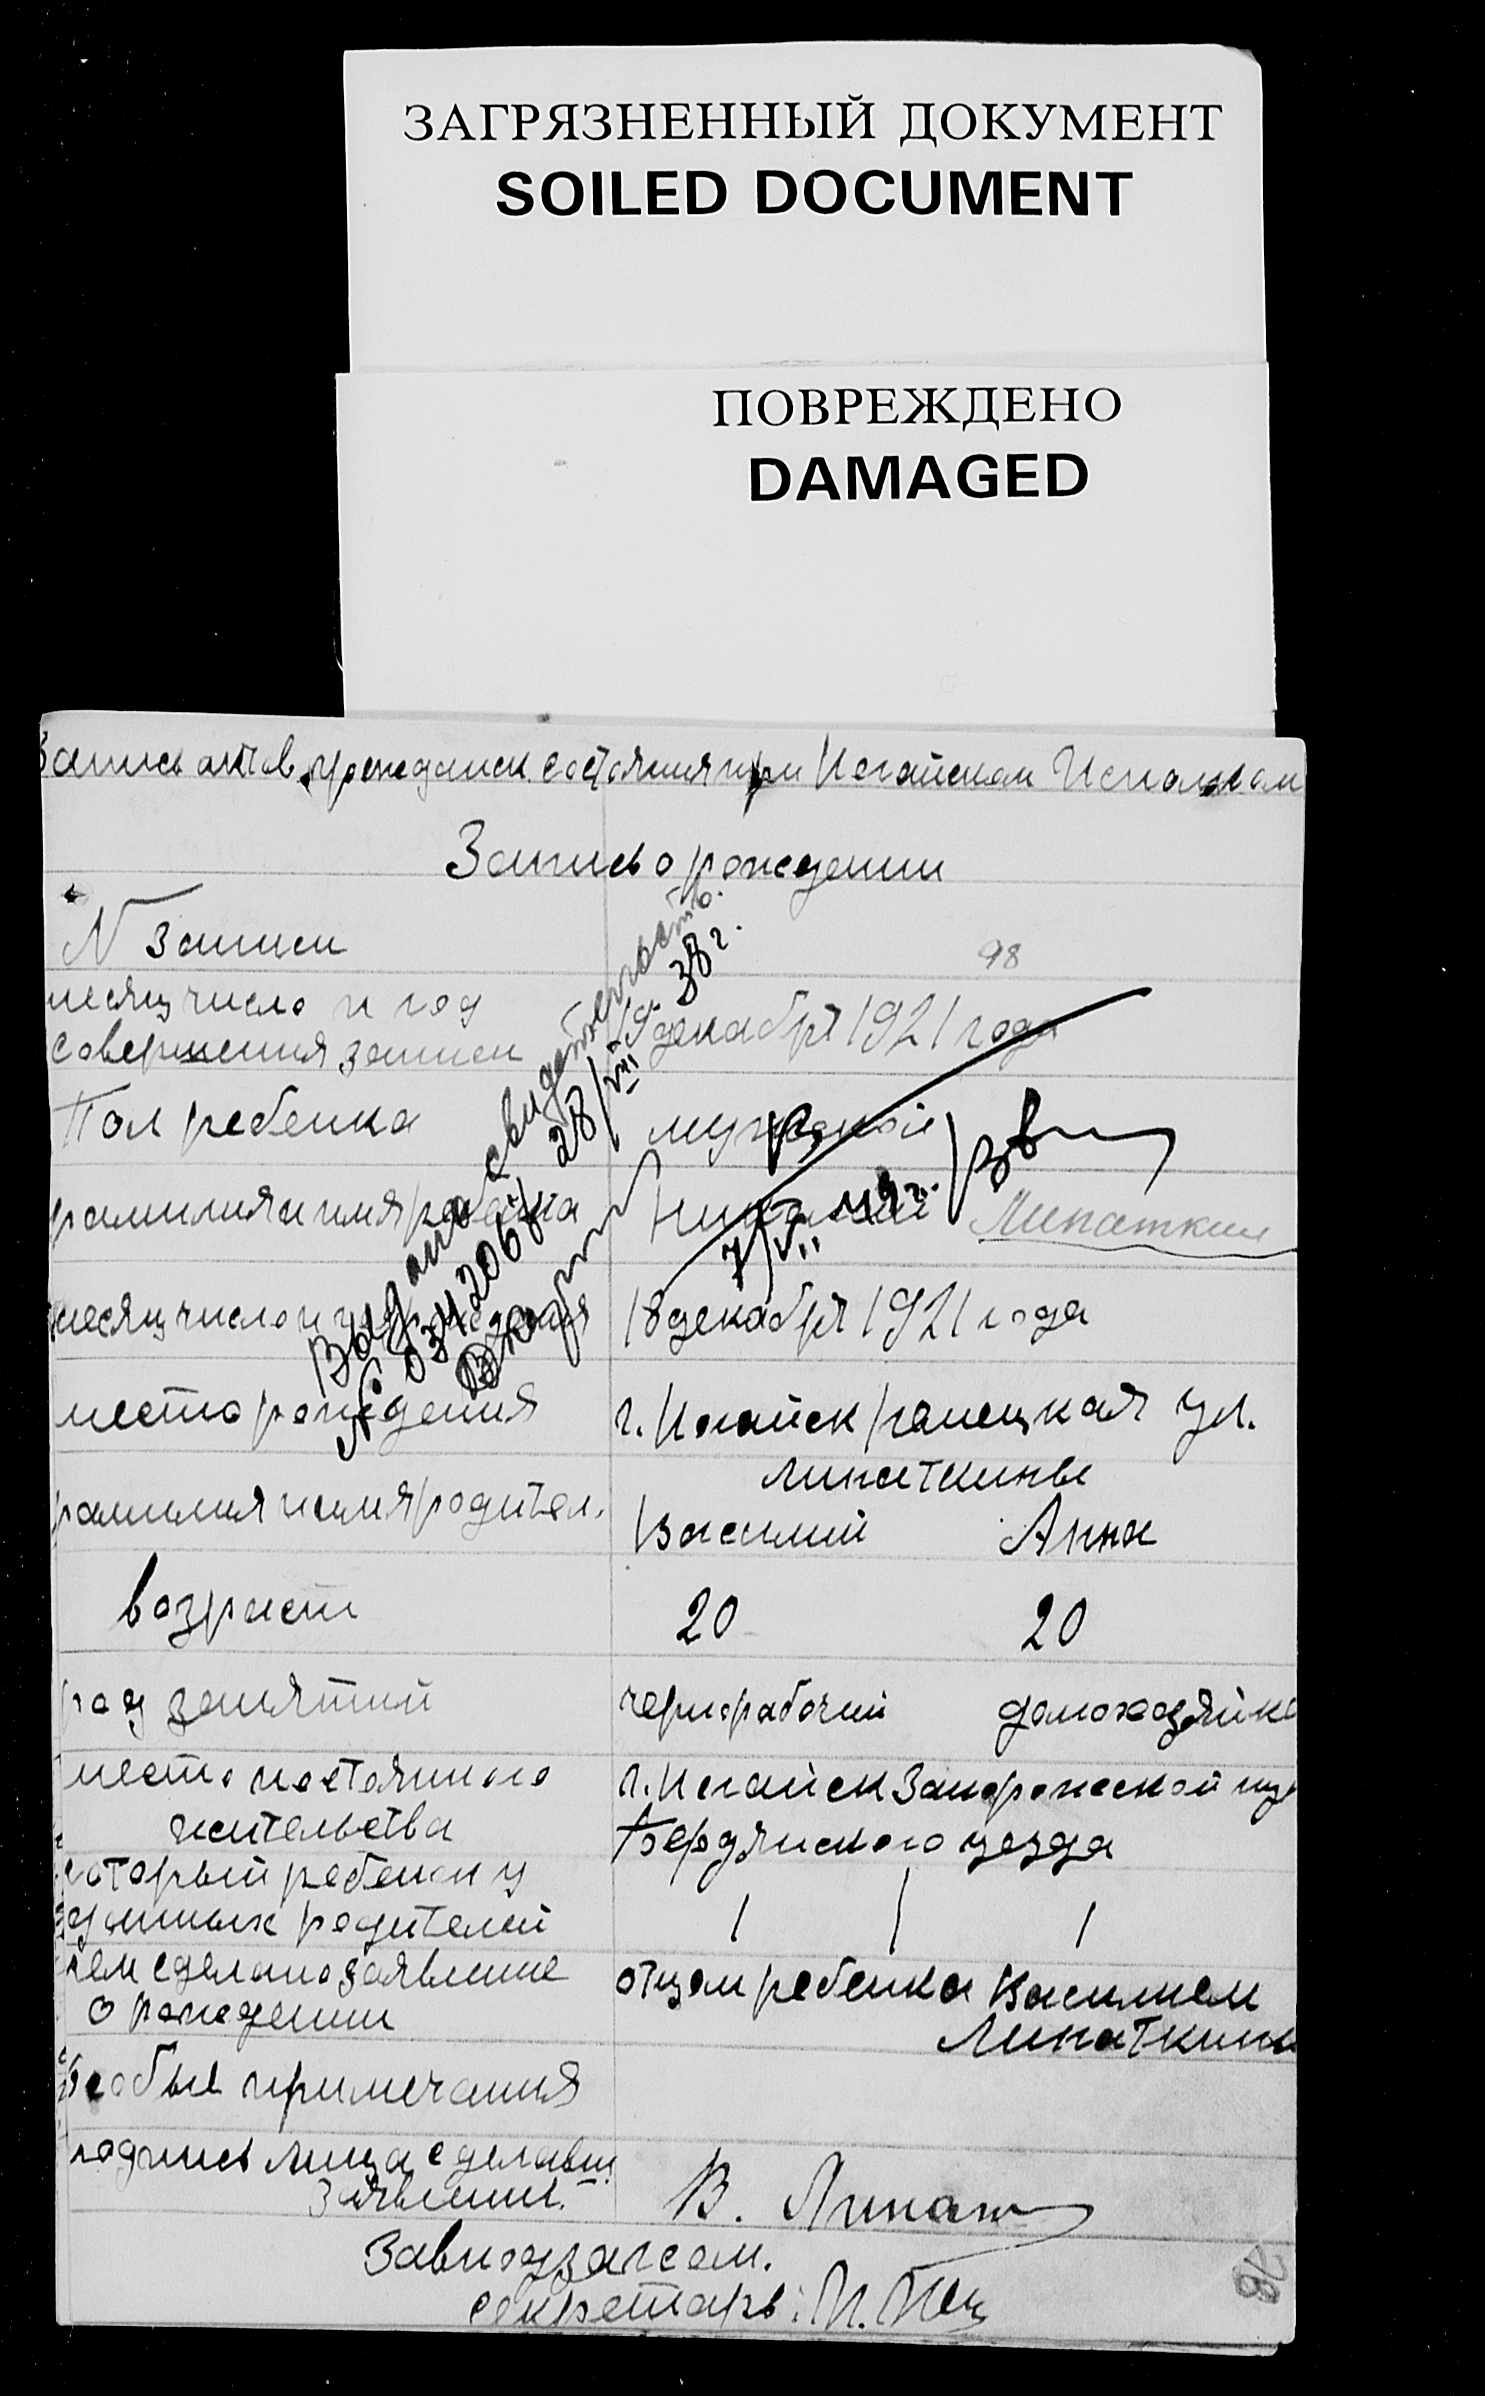 ЗАГРЯЗНЕННЫЙ ДОКУМЕНТ
SOILED DOCUMENT
ПОВРЕЖДЕНО
DAMAGED
Запись актов гражданск. состояния при Ногайском Исполком
Запись о рождении
N записи 98
месяц число и год
совершения записи 19 декабря 1921 года
Пол ребенка мужской
фамилия и имя ребенка Николай Липаткин
месяц число и год рождения 18 декабря 1921 года
место рождения г. Ногайск ул.
Липаткины
фамилия и имя родител. Василий Анна
возраст 20 20
род занятий чернорабочий домохозяйка
место постоянного г. Ногайск Запорожской гу
жительства Бердянского уезда
который ребенок у
данных родителей 1 | 1
кем сделано заявление отцом ребенка Василием
о рождении Липаткины
особые примечания
подпись лица сделавш
заявлении. В. Липат
Завподзагсом.
секретарь:
Выдано свидетельство.
№ 034206 28/VII 38 г.
7/VII
28